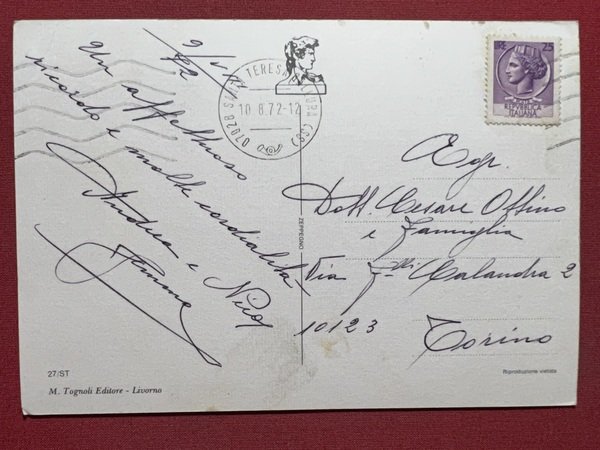 9/VIII
72
Un affettuoso
ricordo e molte cordialità
Andrea e Nico
07028 SANTA TERESA GALLURA (SS)
10.8.72-12
25
REPUBBLICA
ITALIANA
Egr.
Dott. Cesare Offino
e Famiglia
Via F.lli Calandra 2
10123
Torino
ZEPPEGNO
27/ST
M. Tognoli Editore - Livorno
Riproduzione vietata